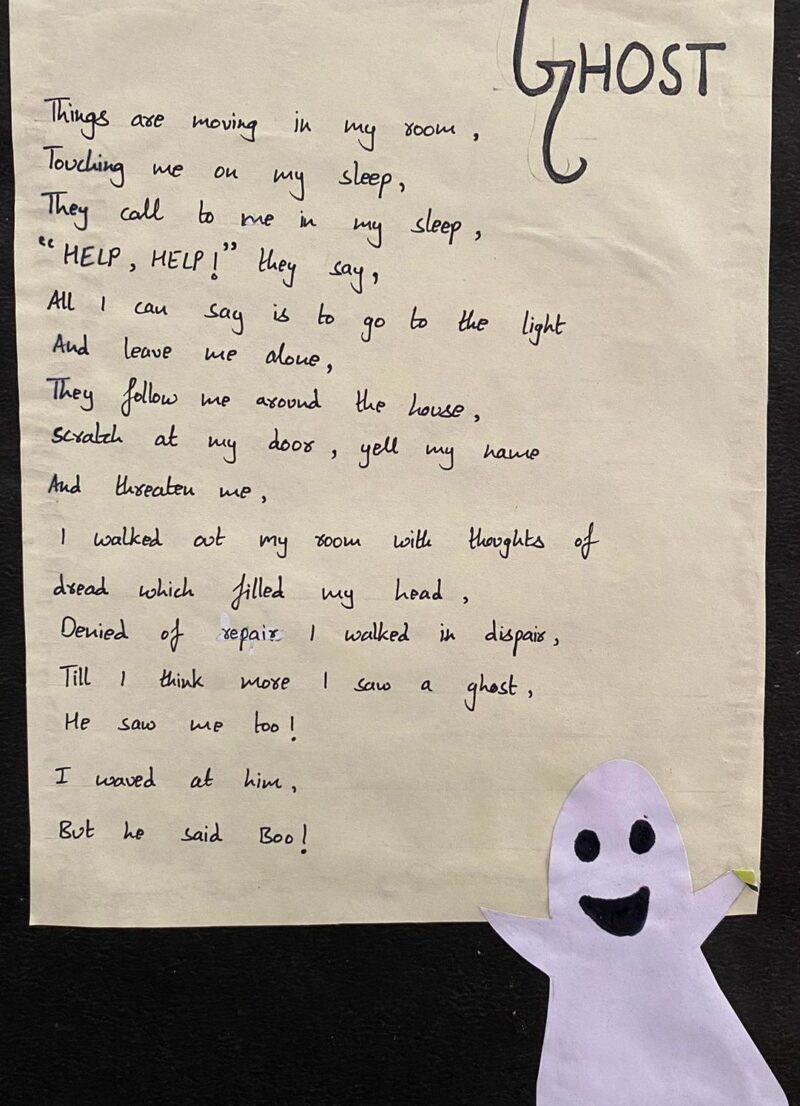 GHOST
Things are moving in my room,
Touching me on my sleep,
They call to me in my sleep,
“HELP, HELP!” they say,
All I can say is to go to the light
And leave me alone,
They follow me around the house,
scratch at my door, yell my name
And threaten me,
I walked out my room with thoughts of
dread which filled my head,
Denied of repair I walked in dispair,
Till I think more I saw a ghost,
He saw me too!
I waved at him,
But he said Boo!